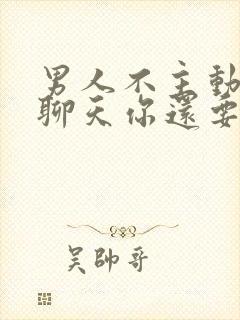 男人不主動
聊天你還要
吳帥哥